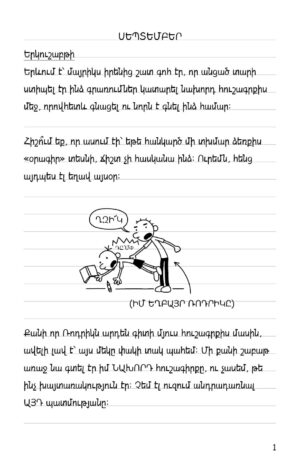 ՍԵՊՏԵՄԲԵՐ
Երկուշաբթի
Երևում է՝ մայրիկս իրենից շատ գոհ էր, որ անցած տարի
ստիպել էր ինձ գրառումներ կատարել նախորդ հուշագրքիս
մեջ, որովհետև գնացել ու նորն է գնել ինձ համար:
Հիշո՞ւմ եք, որ ասում էի՝ եթե հանկարծ մի տխմար ձեռքիս
«օրագիր» տեսնի, ճիշտ չի հասկանա ինձ: Ուրեմն, հենց
այդպես էլ եղավ այսօր:
ՂԶԻԿ
ԴԸՄՓ
(ԻՄ ԵՂԲԱՅՐ ՌՈԴՐԻԿԸ)
Քանի որ Ռոդրիկն արդեն գիտի մյուս հուշագրքիս մասին,
ավելի լավ է՝ այս մեկը փակի տակ պահեմ: Մի քանի շաբաթ
առաջ նա գտել էր իմ ՆԱԽՈՐԴ հուշագիրքը, ու չասեմ, թե
ինչ խայտառակություն էր: Չեմ էլ ուզում անդրադառնալ
ԱՅԴ պատմությանը:
1